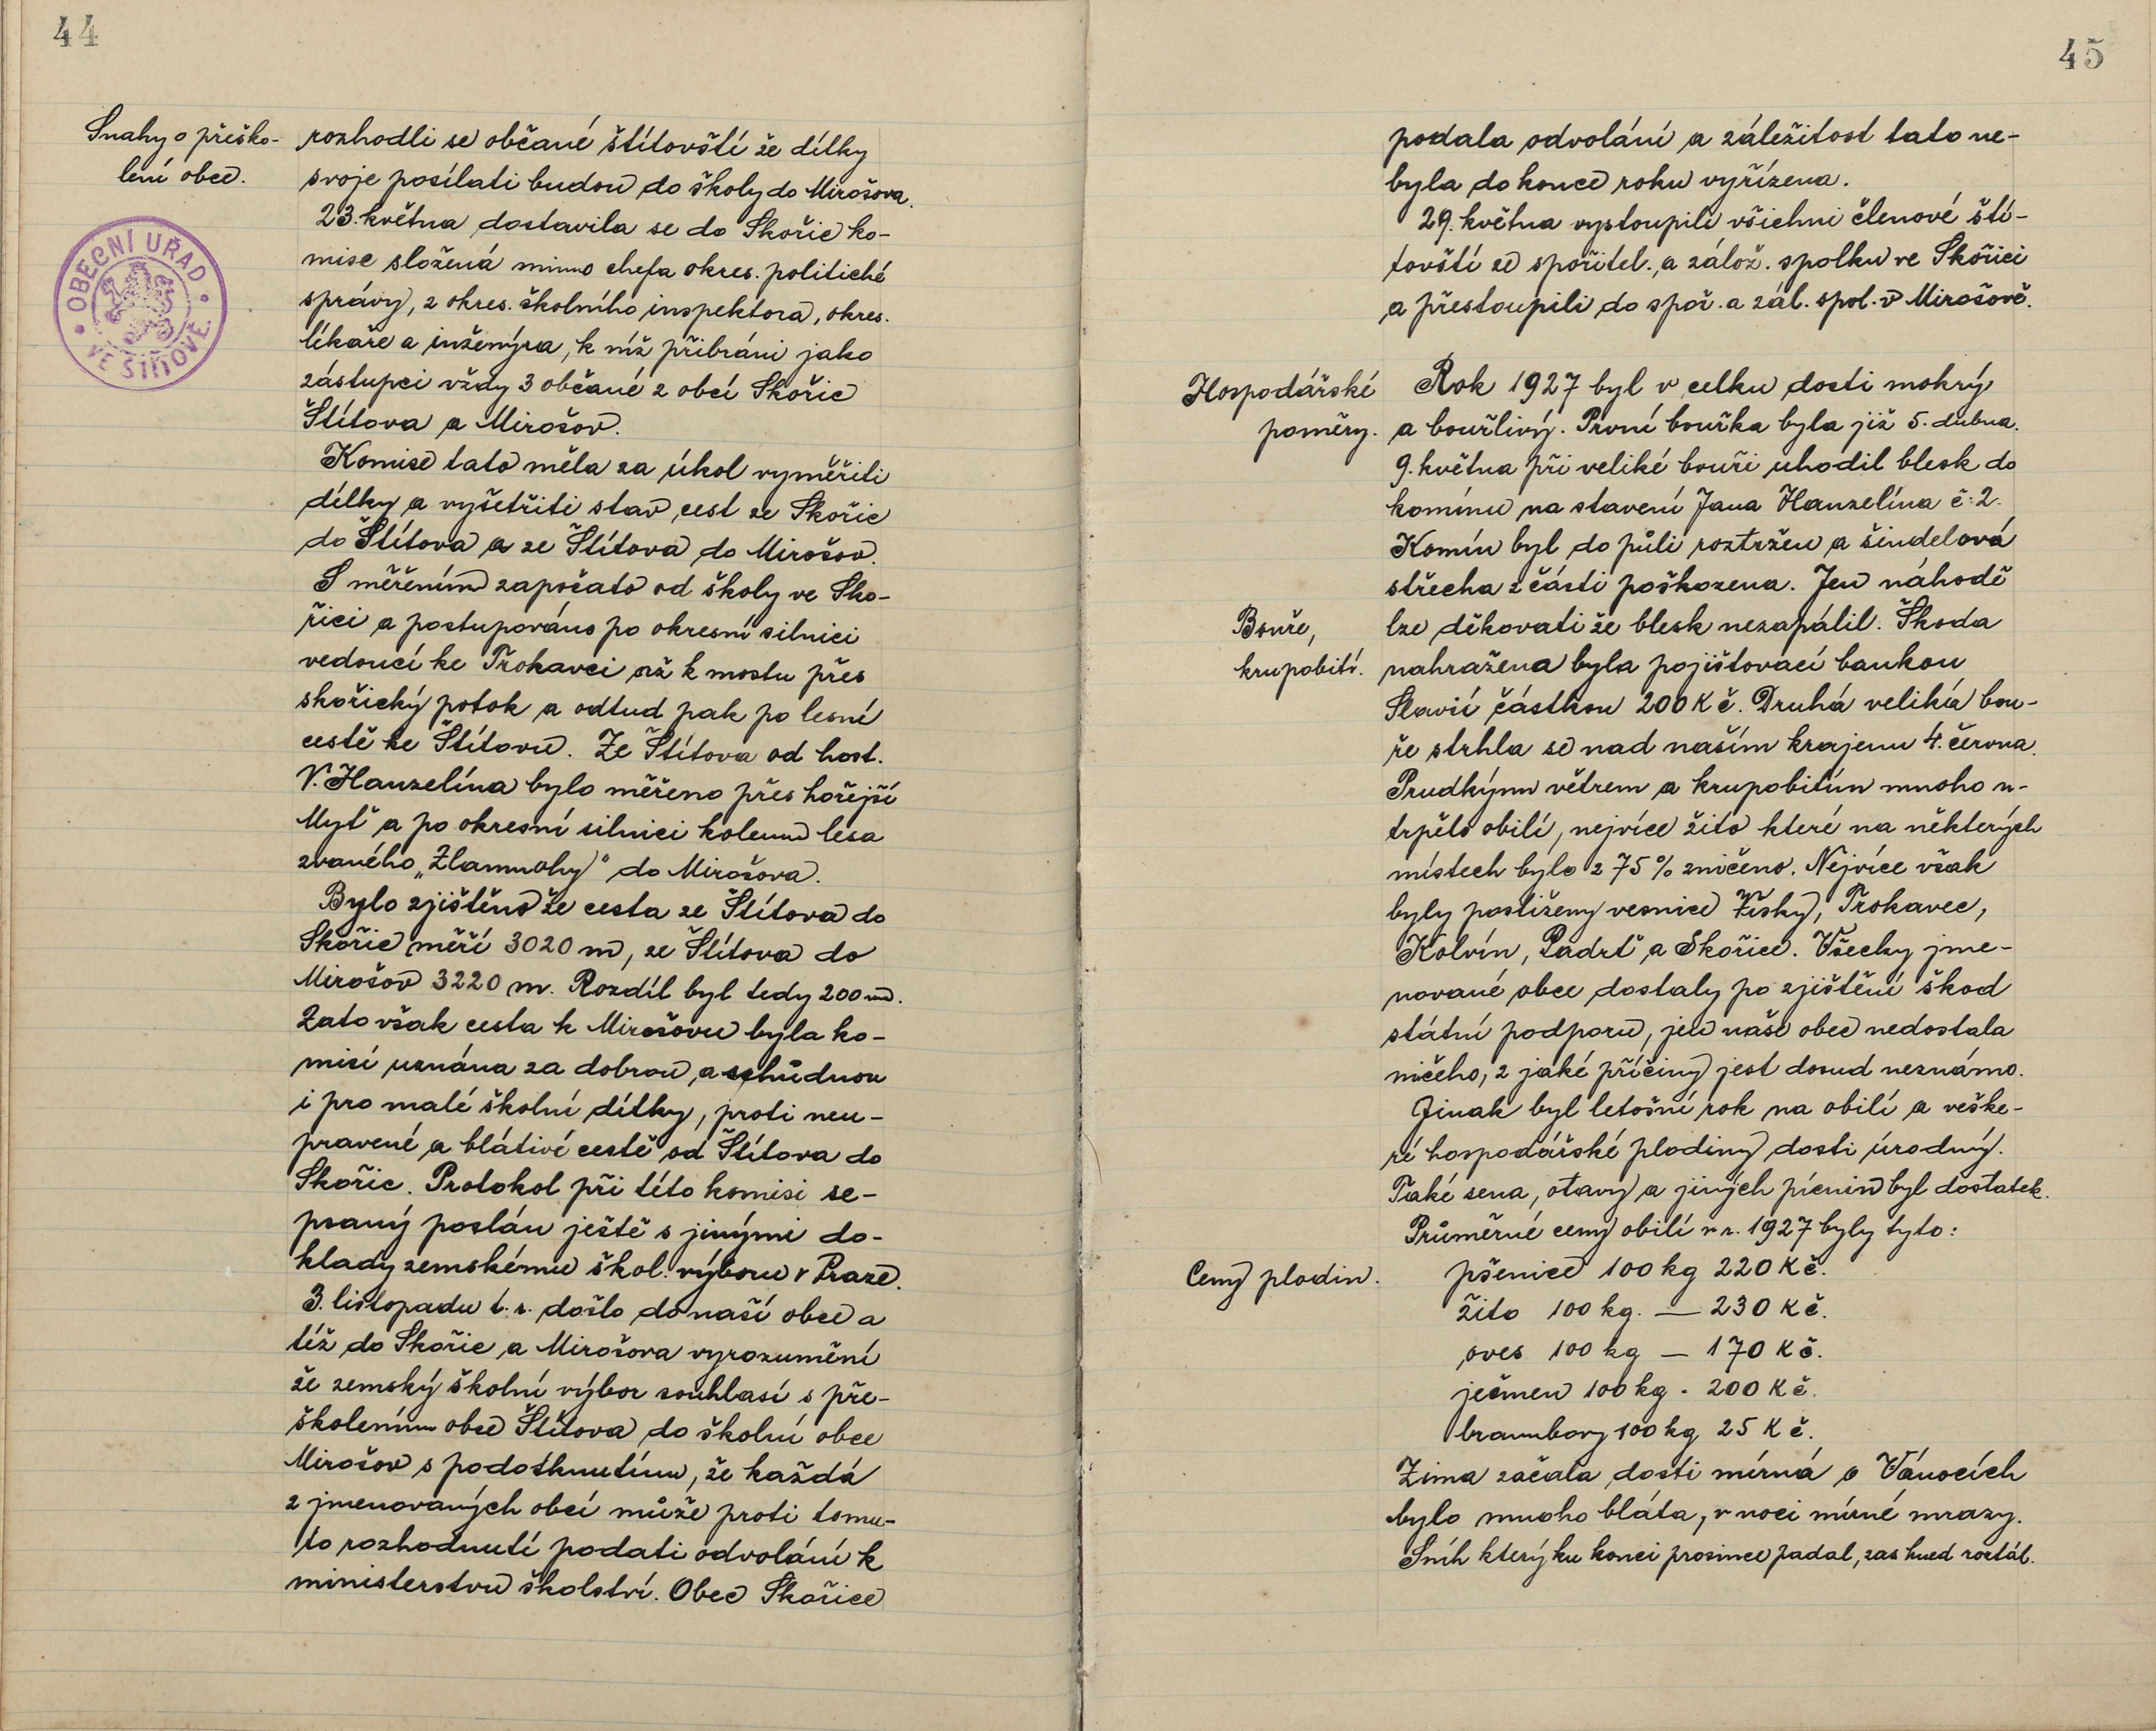 44
Snahy o přeško-
lení obce.
OBECNÍ ÚŘAD
VE ŠTÍTOVĚ
rozhodli se občané štítovští že dítky
svoje posílati budou do školy do Mirošova.
23. května dostavila se do Skořic ko-
mise složená mimo chefa okres. politické
správy, z okres. školního inspektora, okres.
lékaře a inženýra, k níž přibráni jako
zástupci vždy 3 občané z obcí Skořic
Štítova a Mirošov.
Komise tato měla za úkol vyměřili
délky a vyšetřiti stav cest ze Skořic
do Štítova a ze Štítova do Mirošov.
S měřením započato od školy ve Sko-
řici a postupováno po okresní silnici
vedoucí ke Trokavci až k mostu přes
skořický potok a odtud pak po lesní
cestě ke Štítovu. Ze Štítova od host.
V. Hanzelína bylo měřeno přes hořejší
Myť a po okresní silnici kolem lesa
zvaného „Zlamnohy" do Mirošova.
Bylo zjištěno že cesta ze Štítova do
Skořic měří 3020 m, ze Štítova do
Mirošov 3220 m. Rozdíl byl tedy 200 m.
Zato však cesta k Mirošovu byla ko-
misí uznána za dobrou a schůdnou
i pro malé školní dítky, proti neu-
pravené a blátivé cestě od Štítova do
Skořic. Protokol při této komisi se-
psaný poslán ještě s jinými do-
klady zemskému škol. výboru v Praze.
3. listopadu t. r. došlo do naší obce a
též do Skořic a Mirošova vyrozumění
že zemský školní výbor souhlasí s pře-
školením obce Štítova do školní obce
Mirošov s podotknutím, že každá
z jmenovaných obcí může proti tomu-
to rozhodnutí podati odvolání k
ministerstvu školství. Obec Skořice
45
podala odvolání a záležitost tato ne-
byla do konce roku vyřízena.
29. května vystoupili všichni členové ští-
tovští ze spořitel. a zálož. spolku ve Skořici
a přestoupili do spoř. a zál. spol. v Mirošově.
Hospodářské
poměry.
Rok 1927 byl v celku dosti mokrý
a bouřlivý. První bouřka byla již 5. dubna.
9. května při veliké bouři uhodil blesk do
komínu na stavení Jana Hanzelína č. 2.
Komín byl do půli roztržen a šindelová
střecha z části poškozena. Jen náhodě
Bouře,
krupobití.
lze děkovati že blesk nezapálil. Škoda
nahražena byla pojišťovací bankou
Slavií částkou 200 Kč. Druhá veliká bou-
ře strhla se nad naším krajem 4. června.
Prudkým větrem a krupobitím mnoho u-
trpělo obilí, nejvíce žito které na některých
místech bylo z 75 % zničeno. Nejvíce však
byly postiženy vesnice Vísky, Trokavec,
Kolvín, Padrť a Skořice. Všecky jme-
nované obce dostaly po zjištění škod
státní podporu, jen naše obec nedostala
ničeho, z jaké příčiny jest dosud neznámo.
Jinak byl letošní rok na obilí a veške-
ré hospodářské plodiny dosti úrodný.
Také sena, otavy a jiných pícnin byl dostatek.
Průměrné ceny obilí v r. 1927 byly tyto:
Ceny plodin.
pšenice 100 kg 220 Kč.
žito 100 kg. — 230 Kč.
oves 100 kg — 170 Kč.
ječmen 100 kg - 200 Kč.
brambory 100 kg 25 Kč.
Zima začala dosti mírná o Vánocích
bylo mnoho bláta, v noci mírné mrazy.
Sníh který ku konci prosince padal, zas hned roztál.